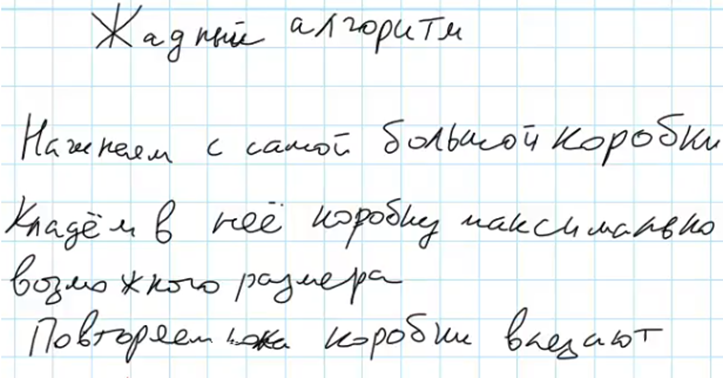 Жадный алгоритм
Начнаем с самой большой коробки
Кладём в неё коробку максимально
возможного размера
Повторяем пока коробки влезают